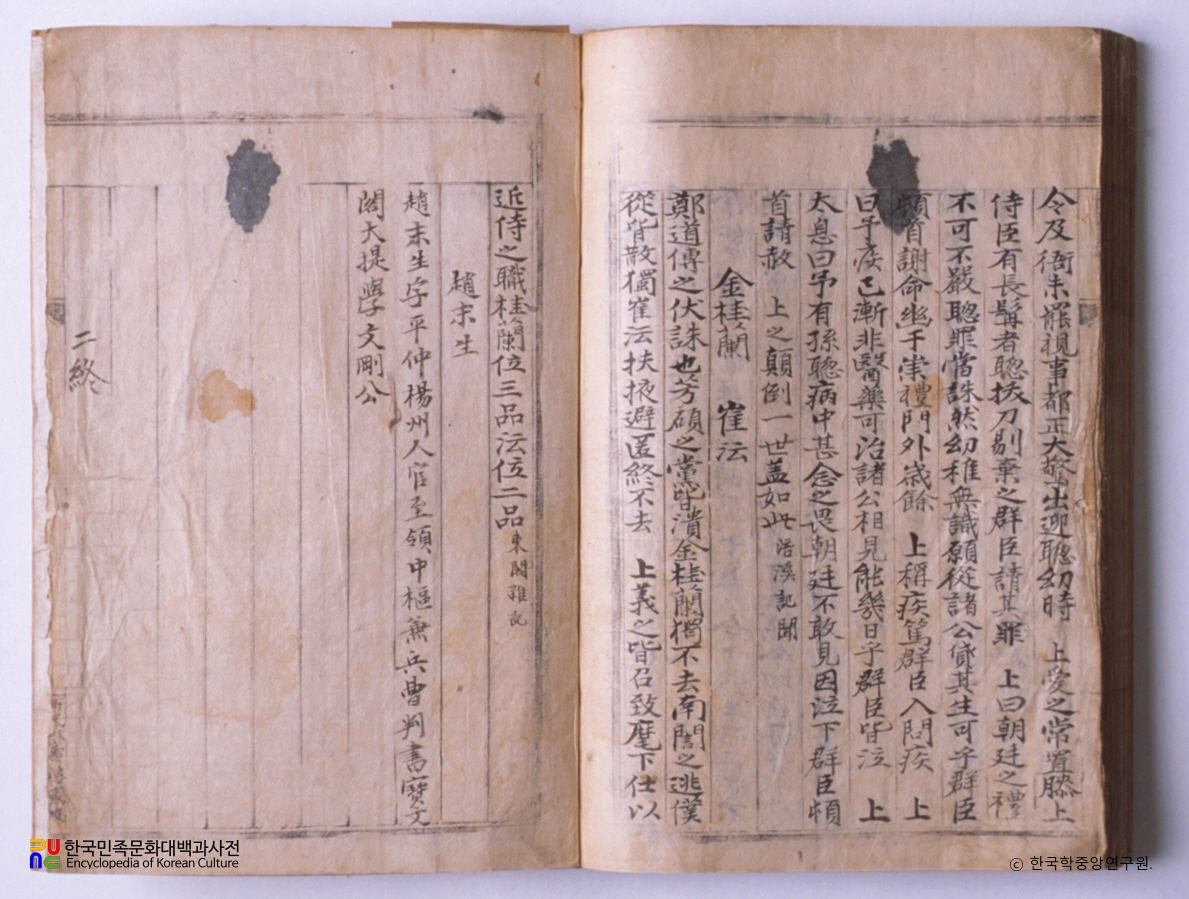 令及衙未罷視事都正大驚出迎聰幼時 上愛之常置膝上
侍臣有長髯者聰扶刀剔棄之群臣請其罪 上曰朝廷之禮
不可不嚴聰罪當誅然幼稚無識願從諸公貸其生可乎群臣
頓首謝命幽于崇禮門外歲餘 上稱疾篤群臣入問疾 上
曰予疾已漸非醫藥可治諸公相見能幾日乎群臣皆泣 上
太息曰予有孫聰病中甚念之畏朝廷不敢見因泣下群臣頓
首請赦 上之顛倒一世盖如此 浯溪記聞
金桂蘭 崔沄
鄭道傳之伏誅也芳碩之黨皆潰金桂蘭獨不去南誾之逃僕
從皆散獨崔沄扶掖避匿終不去 上義之皆召致麾下仕以
近侍之職桂蘭位三品沄位二品 東閣雜記
趙末生
趙末生字平仲楊州人官至領中樞兼兵曹判書寶文
閣大提學文剛公
二終
한국민족문화대백과사전
Encyclopedia of Korean Culture
ⓒ 한국학중앙연구원.